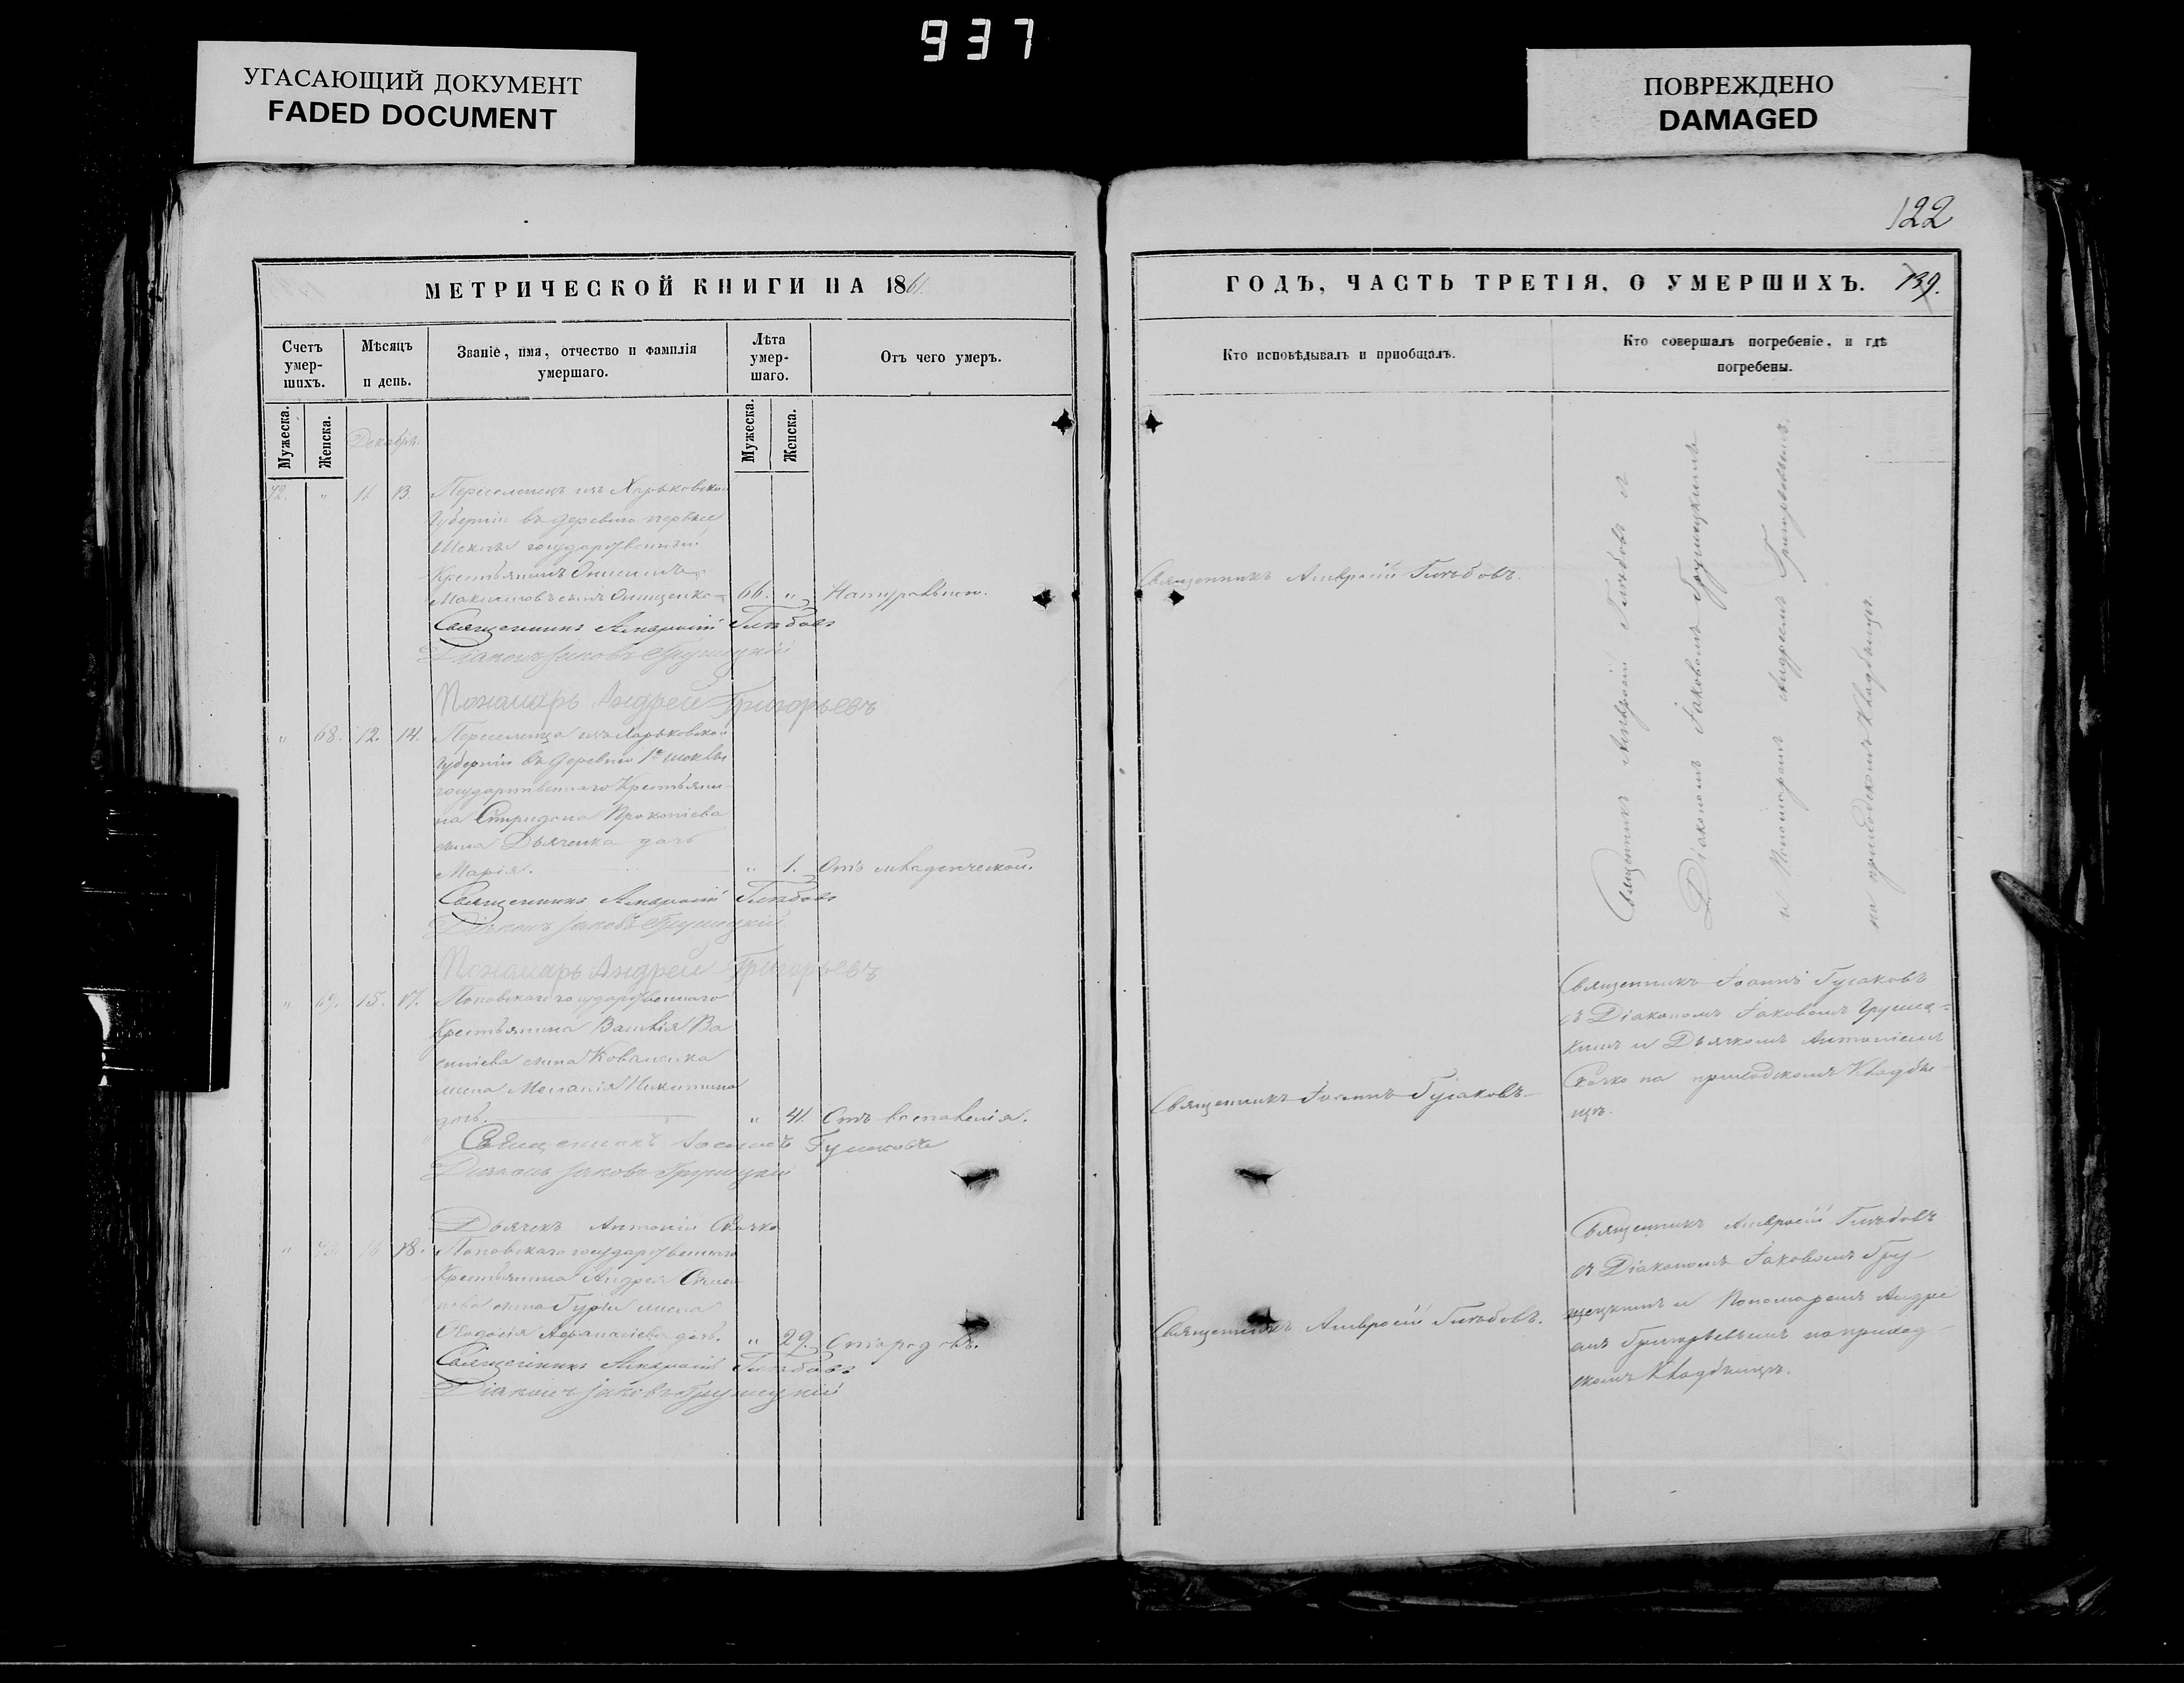 937
УГАСАЮЩИЙ ДОКУМЕНТ
FADED DOCUMENT
ПОВРЕЖДЕНО
DAMAGED
122
МЕТРИЧЕСКОЙ КНИГИ НА 1861.
Счетъ
умер-
шихъ.
Мѣсяцъ
и день.
Званіе, имя, отчество и фамилія
умершаго.
Лѣта
умер-
шаго.
Отъ чего умеръ.
Мужеска.
Женска.
Декабрь.
Мужеска.
Женска.
72. " 11. 13. Переселенецъ изъ Харьковской
Губерніи въ деревню
государственный
Крестьянинъ
сынъ Онищенко 66. " Натуральною.
Священникъ Амвросій Глѣбовъ
Діаконъ Іаковъ Грушецкій
Пономарь Андрей Григорьевъ
" 68. 12. 14. изъ Харьковской
Губерніи въ деревню
государственнаго Крестьяни-
на Спиридона Прокопіева
сына Дьяченка дочь
Марія. " 1. Отъ младенческой.
Священникъ Амвросій Глѣбовъ
Діаконъ Іаковъ Грушецкій
Пономарь Андрей Григорьевъ
" 69. 15. 17. Поповскаго государственнаго
Крестьянина Василія
сына
жена Никитина
дочь. " 41. Отъ воспаленія.
Священникъ Іоаннъ Гусаковъ
Діаконъ Іаковъ Грушецкій
Дьячекъ Антоній Скочко
" 18. Поповскаго государственнаго
Крестьянина Андрея
сына жена
Феодосія Афанасіева дочь. " 29. Отъ родовъ.
Священникъ Амвросій Глѣбовъ
Діаконъ Іаковъ Грушецкій
ГОДЪ, ЧАСТЬ ТРЕТІЯ, О УМЕРШИХЪ. 139.
Кто исповѣдывалъ и пріобщалъ.
Кто совершалъ погребеніе, и гдѣ
погребены.
Священникъ Амвросій Глѣбовъ.
Священникъ Амвросій Глѣбовъ съ
Діакономъ Іаковомъ Грушецкимъ
и Пономаремъ Андреемъ Григорьевымъ.
на приходскомъ Кладбищѣ.
Священникъ Іоаннъ Гусаковъ.
Священникъ Іоаннъ Гусаковъ
съ Діакономъ Іаковомъ Грушец-
кимъ и Дьячкомъ Антоніемъ
Скочко на приходскомъ Кладби-
щѣ.
Священникъ Амвросій Глѣбовъ.
Священникъ Амвросій Глѣбовъ
съ Діакономъ Іаковомъ Гру-
шецкимъ и Пономаремъ Андре
емъ Григорьевымъ на приход
скомъ Кладбищѣ.